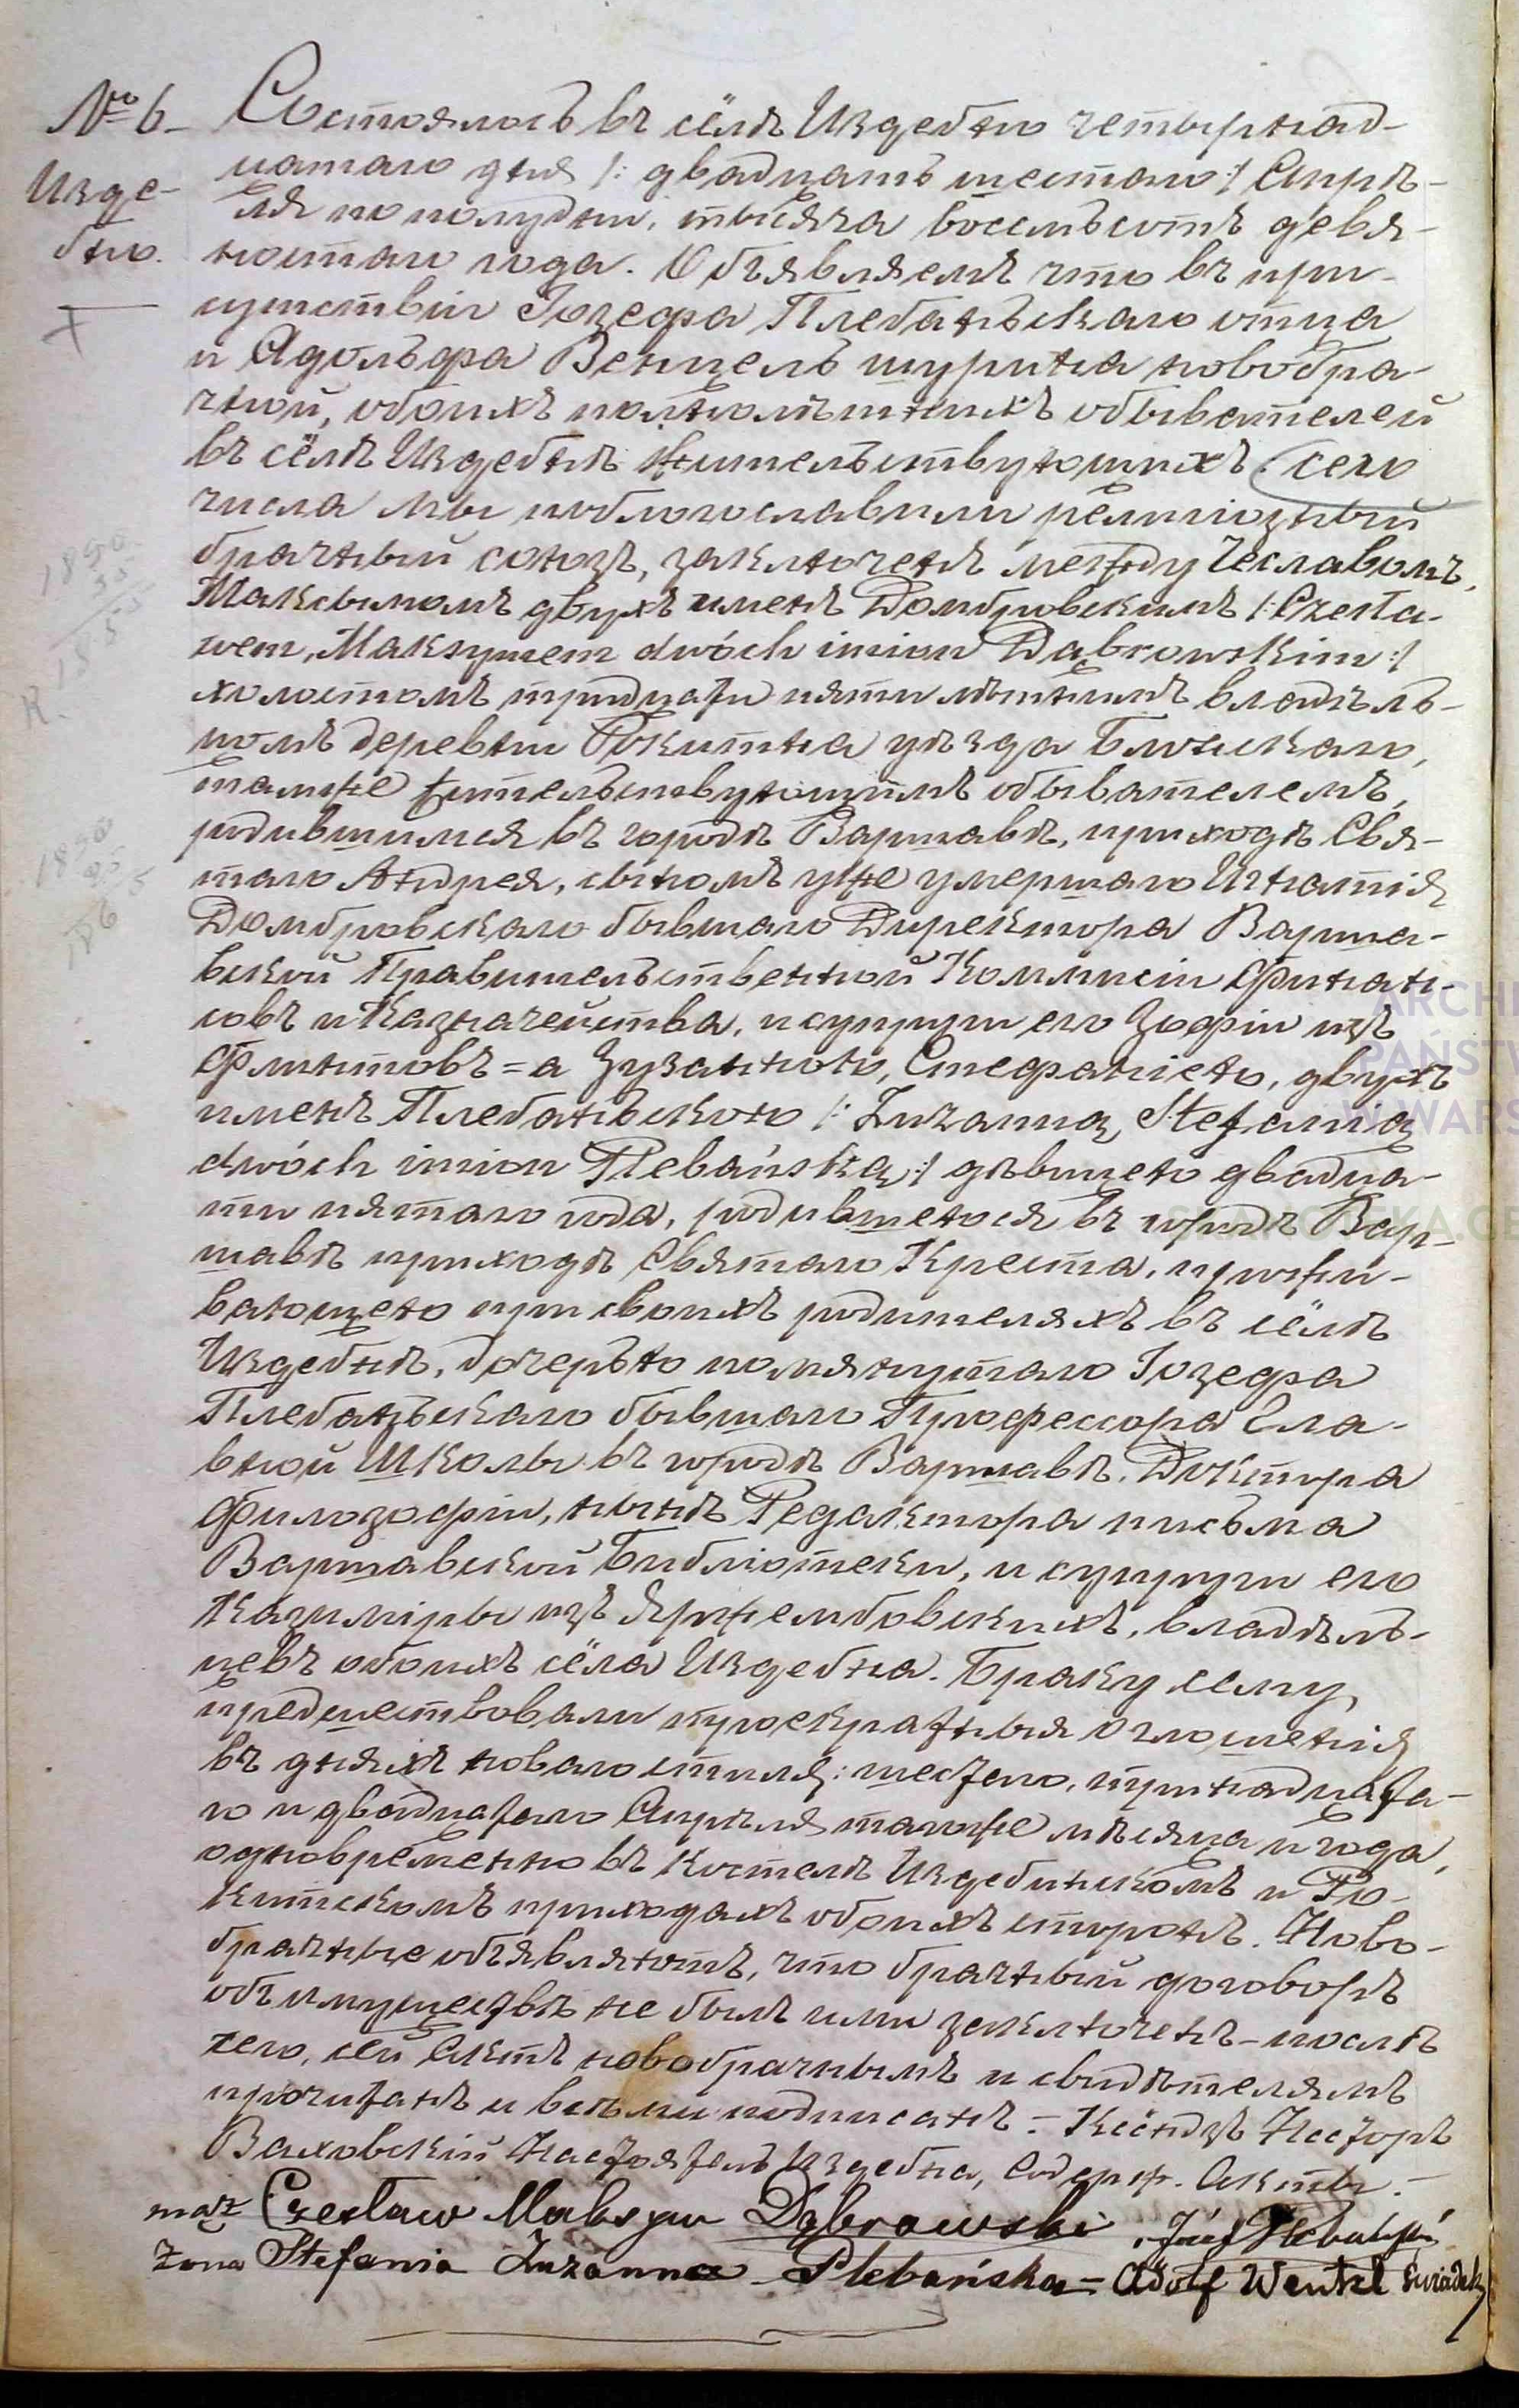 № 6
Изде-
бно.
Состоялось въ сёлѣ Издебно четырнад-
цатаго дня /: двадцать шестаго :/ Апрѣ-
ля по полудни, тысяча восемьсотъ девя-
ностаго года. Объявляемъ что въ при-
сутствіи Іозефа Плебаньскаго отца
и Адольфа Венцель шурина новобра-
чной, обоихъ полнолѣтнихъ обывателей
въ сёлѣ Издебнѣ жительствующихъ, сего
числа мы поблогославили религіозный
брачный союзъ, заключенъ между Чеславомъ,
Максымомъ двухъ именъ Домбровскимъ /: Czesła-
wem, Maksymem dwóch imion Dąbrowskim :/
холостомъ тридцати пяти лѣтнимъ владѣль-
цомъ деревни Рокитна уѣзда Блонскаго,
тамже жительствующимъ обывателемъ,
родившимся въ городѣ Варшавѣ, приходѣ Свя-
таго Андрея, сыномъ уже умершаго Игнатія
Домбровскаго бывшаго Директора Варша-
вской Правительственной Коммисіи Финан-
совъ и Казначейства, и супруги его Зофіи изъ
Флинтовъ = а Зузанною, Стефаніею, двухъ
именъ Плебаньскою /: Zuzanną, Stefanią
dwóch imion Plebańską :/ дѣвицею двадца-
ти пятаго года, родившеюся въ городѣ Вар-
шавѣ приходѣ Святаго Креста, прожи-
вающею при своихъ родителяхъ въ сёлѣ
Издебнѣ, дочерью помянутаго Іозефа
Плебаньскаго бывшаго Профессора Гла-
вной Школы въ городѣ Варшавѣ, Доктора
Филозофіи, нынѣ Редактора письма
Варшавской Библіотеки, и супруги его
Казиміры изъ Яржембовскихъ, владѣль-
цевъ обоихъ сёла Издебна. Браку сему
предшествовали троекратныя оглошенія
въ дняхъ новаго стиля: шестаго, тринадцата-
го и двадцатаго Апрѣля тагоже мѣсяца и года,
одновременно въ Костелѣ Издебинскомъ и Ро-
китскомъ приходахъ обоихъ сторонъ. Ново-
брачные объявляютъ, что брачный договоръ
объ имуществѣ не былъ ими заключенъ - послѣ
чего, сей Актъ новобрачнымъ и свидѣтелямъ
прочитанъ и всѣми подписанъ. - Ксёндзъ Несторъ
Ваховскій Настоятель Издебна, Содерж. Акты. -
mąż Czesław Maksym Dąbrowski, Józef Plebański
Żona Stefania Zuzanna Plebańska = Adolf Wentzl świadek
1890
35
1855
R.
1890
25
186